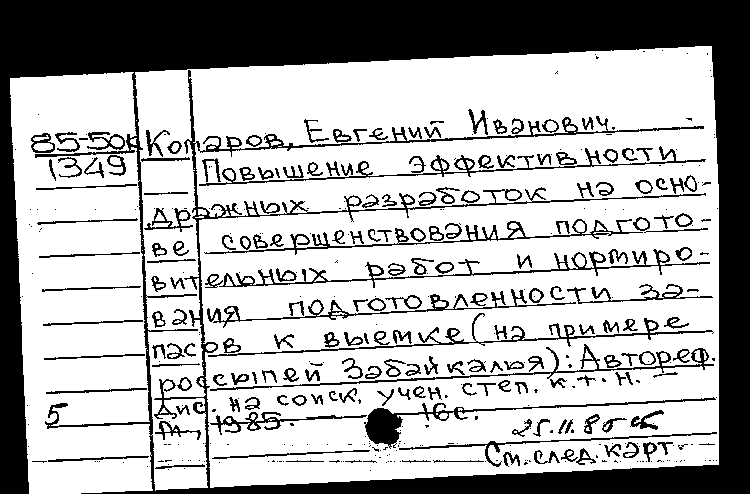 85-50к Комаров, Евгений Иванович.
1349 Повышение эффективности
дражных разработок на осно-
ве совершенствования подгото-
вительных работ и нормиро-
вания подготовленности за-
пасов к выемке (на примере
россыпей Забайкалья): Автореф.
дис. на соиск. учен. степ. к.т.н. –
5 М., 1985. 16с.
25.11.85
См. след. карт.